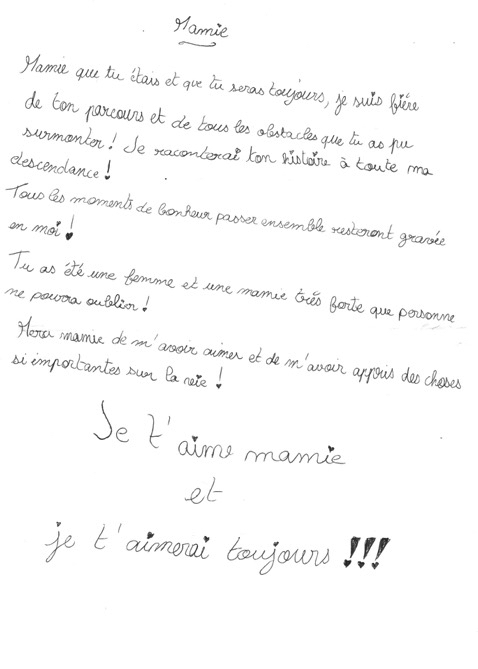 Mamie
Mamie que tu étais et que tu seras toujours, je suis fière
de ton parcours et de tous les obstacles que tu as pu
surmonter ! Je raconterai ton histoire à toute ma
descendance !
Tous les moments de bonheur passer ensemble resteront gravée
en moi !
Tu as été une femme et une mamie très forte que personne
ne pourra oublier !
Merci mamie de m'avoir aimer et de m'avoir appris des choses
si importantes sur la vie !
Je t'aime mamie
et
je t'aimerai toujours !!!